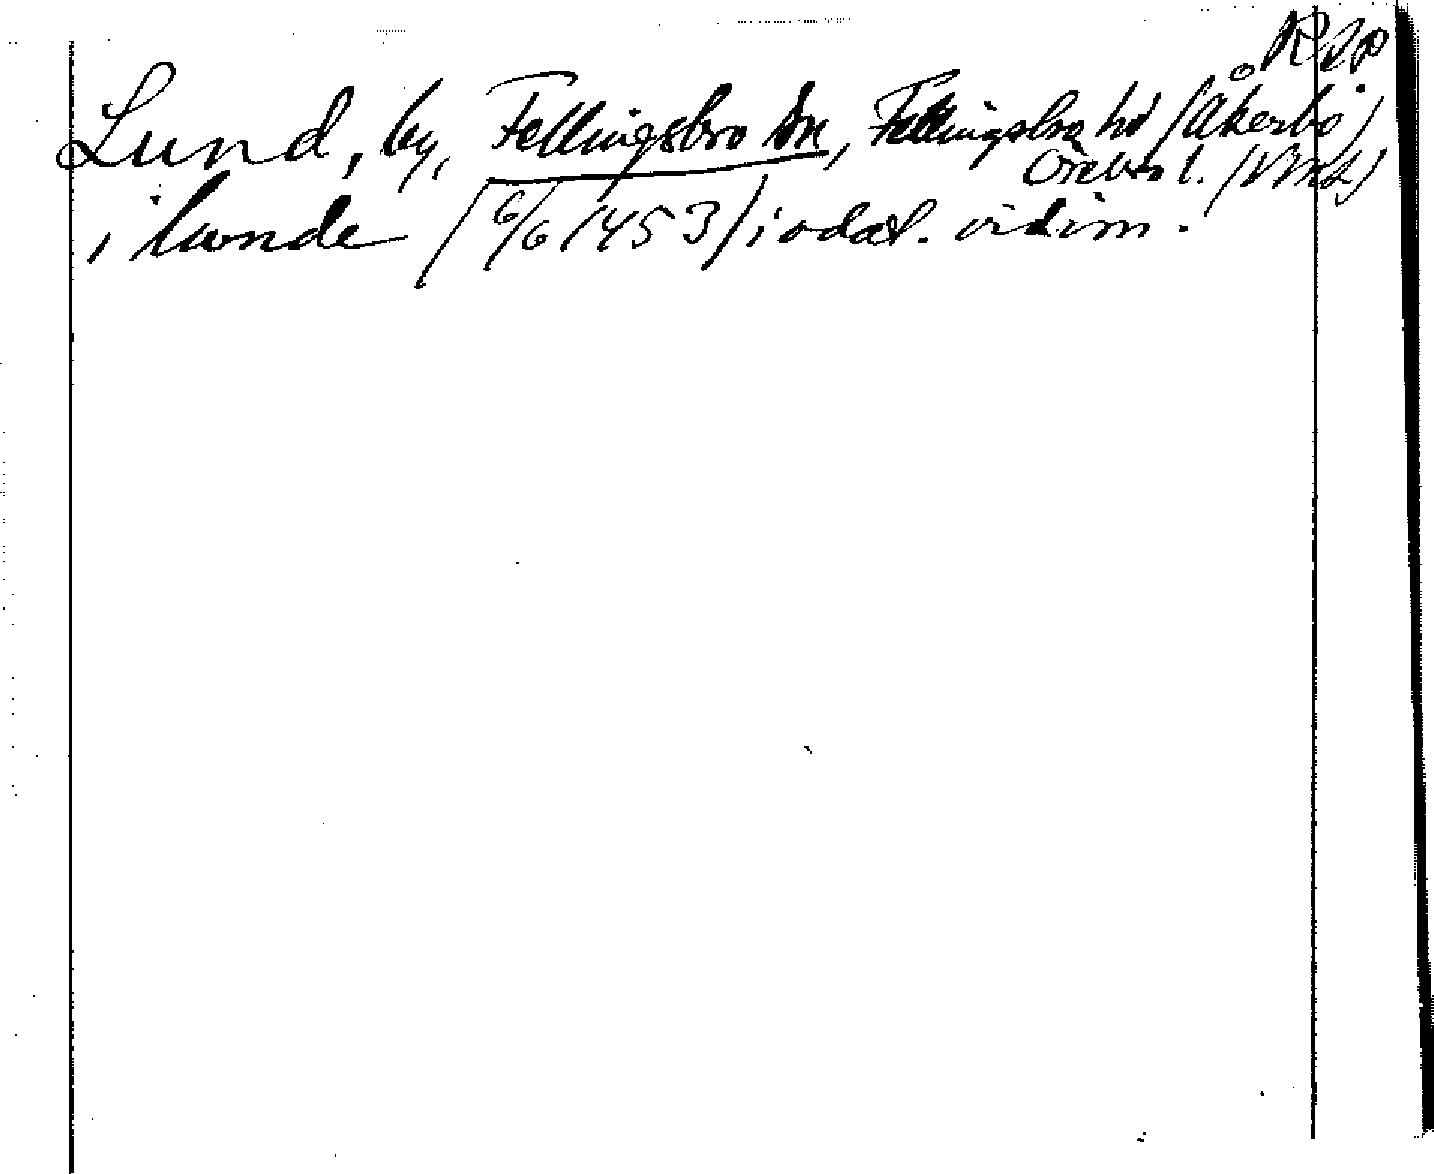 Lund, by, Fellingsbro sn, Fellingsbro hd /Åkerbo/
Örebro l. /VML/
i lunde /6/6 1453/ i odat. vidim.